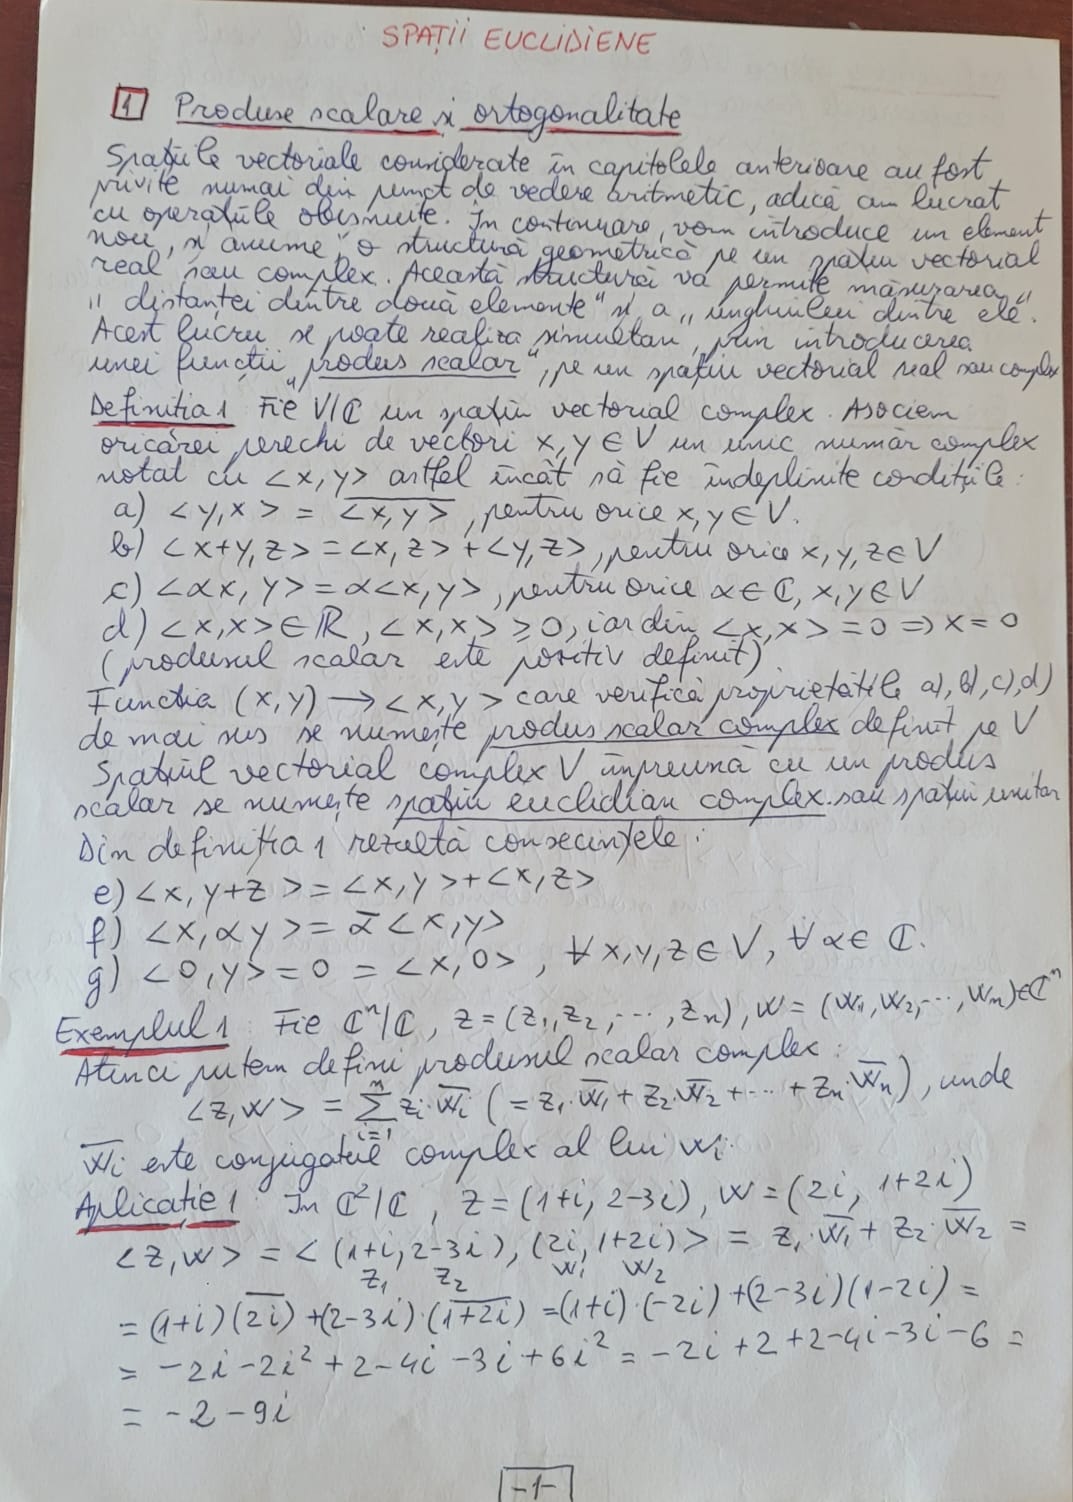 SPAȚII EUCLIDIENE
1 Produse scalare și ortogonalitate
Spațiile vectoriale considerate în capitolele anterioare au fost
privite numai din punct de vedere aritmetic, adică am lucrat
cu operațiile obișnuite. În continuare, vom introduce un element
nou, și anume "o structură geometrică pe un spațiu vectorial
real sau complex. Această structură va permite măsurarea
"distanței dintre două elemente" și a "unghiului dintre ele".
Acest lucru se poate realiza simultan, prin introducerea
unei funcții "produs scalar", pe un spațiu vectorial real sau complex
Definiția 1 Fie V/ℂ un spațiu vectorial complex. Asociem
oricărei perechi de vectori x, y ∈ V un unic număr complex
notat cu <x, y> astfel încât să fie îndeplinite condițiile:
a) <y, x> = \overline{<x, y>}, pentru orice x, y ∈ V.
b) <x+y, z> = <x, z> + <y, z>, pentru orice x, y, z ∈ V
c) <αx, y> = α<x, y>, pentru orice α ∈ ℂ, x, y ∈ V
d) <x, x> ∈ ℝ, <x, x> ≥ 0, iar din <x, x> = 0 ⇒ x = 0
(produsul scalar este pozitiv definit).
Funcția (x, y) → <x, y> care verifică proprietățile a), b), c), d)
de mai sus se numește produs scalar complex definit pe V
Spațiul vectorial complex V împreună cu un produs
scalar se numește spațiu euclidian complex. sau spațiu unitar
Din definiția 1 rezultă consecințele:
e) <x, y+z> = <x, y> + <x, z>
f) <x, αy> = \overline{α} <x, y>
g) <0, y> = 0 = <x, 0>, ∀ x, y, z ∈ V, ∀ α ∈ ℂ.
Exemplul 1 Fie ℂⁿ/ℂ, z = (z₁, z₂, ..., zₙ), w = (w₁, w₂, ..., wₙ) ∈ ℂⁿ
Atunci putem defini produsul scalar complex:
<z, w> = \sum_{i=1}^{n} zᵢ·\overline{wᵢ} (= z₁·\overline{w₁} + z₂·\overline{w₂} + ... + zₙ·\overline{wₙ}), unde
\overline{wᵢ} este conjugatul complex al lui wᵢ.
Aplicație 1 În ℂ²/ℂ, z = (1+i, 2-3i), w = (2i, 1+2i)
<z, w> = <(1+i, 2-3i), (2i, 1+2i)> = z₁·\overline{w₁} + z₂·\overline{w₂} =
z₁ z₂ w₁ w₂
= (1+i)(\overline{2i}) + (2-3i)·(\overline{1+2i}) = (1+i)·(-2i) + (2-3i)(1-2i) =
= -2i - 2i² + 2 - 4i - 3i + 6i² = -2i + 2 + 2 - 4i - 3i - 6 =
= -2 - 9i
-1-